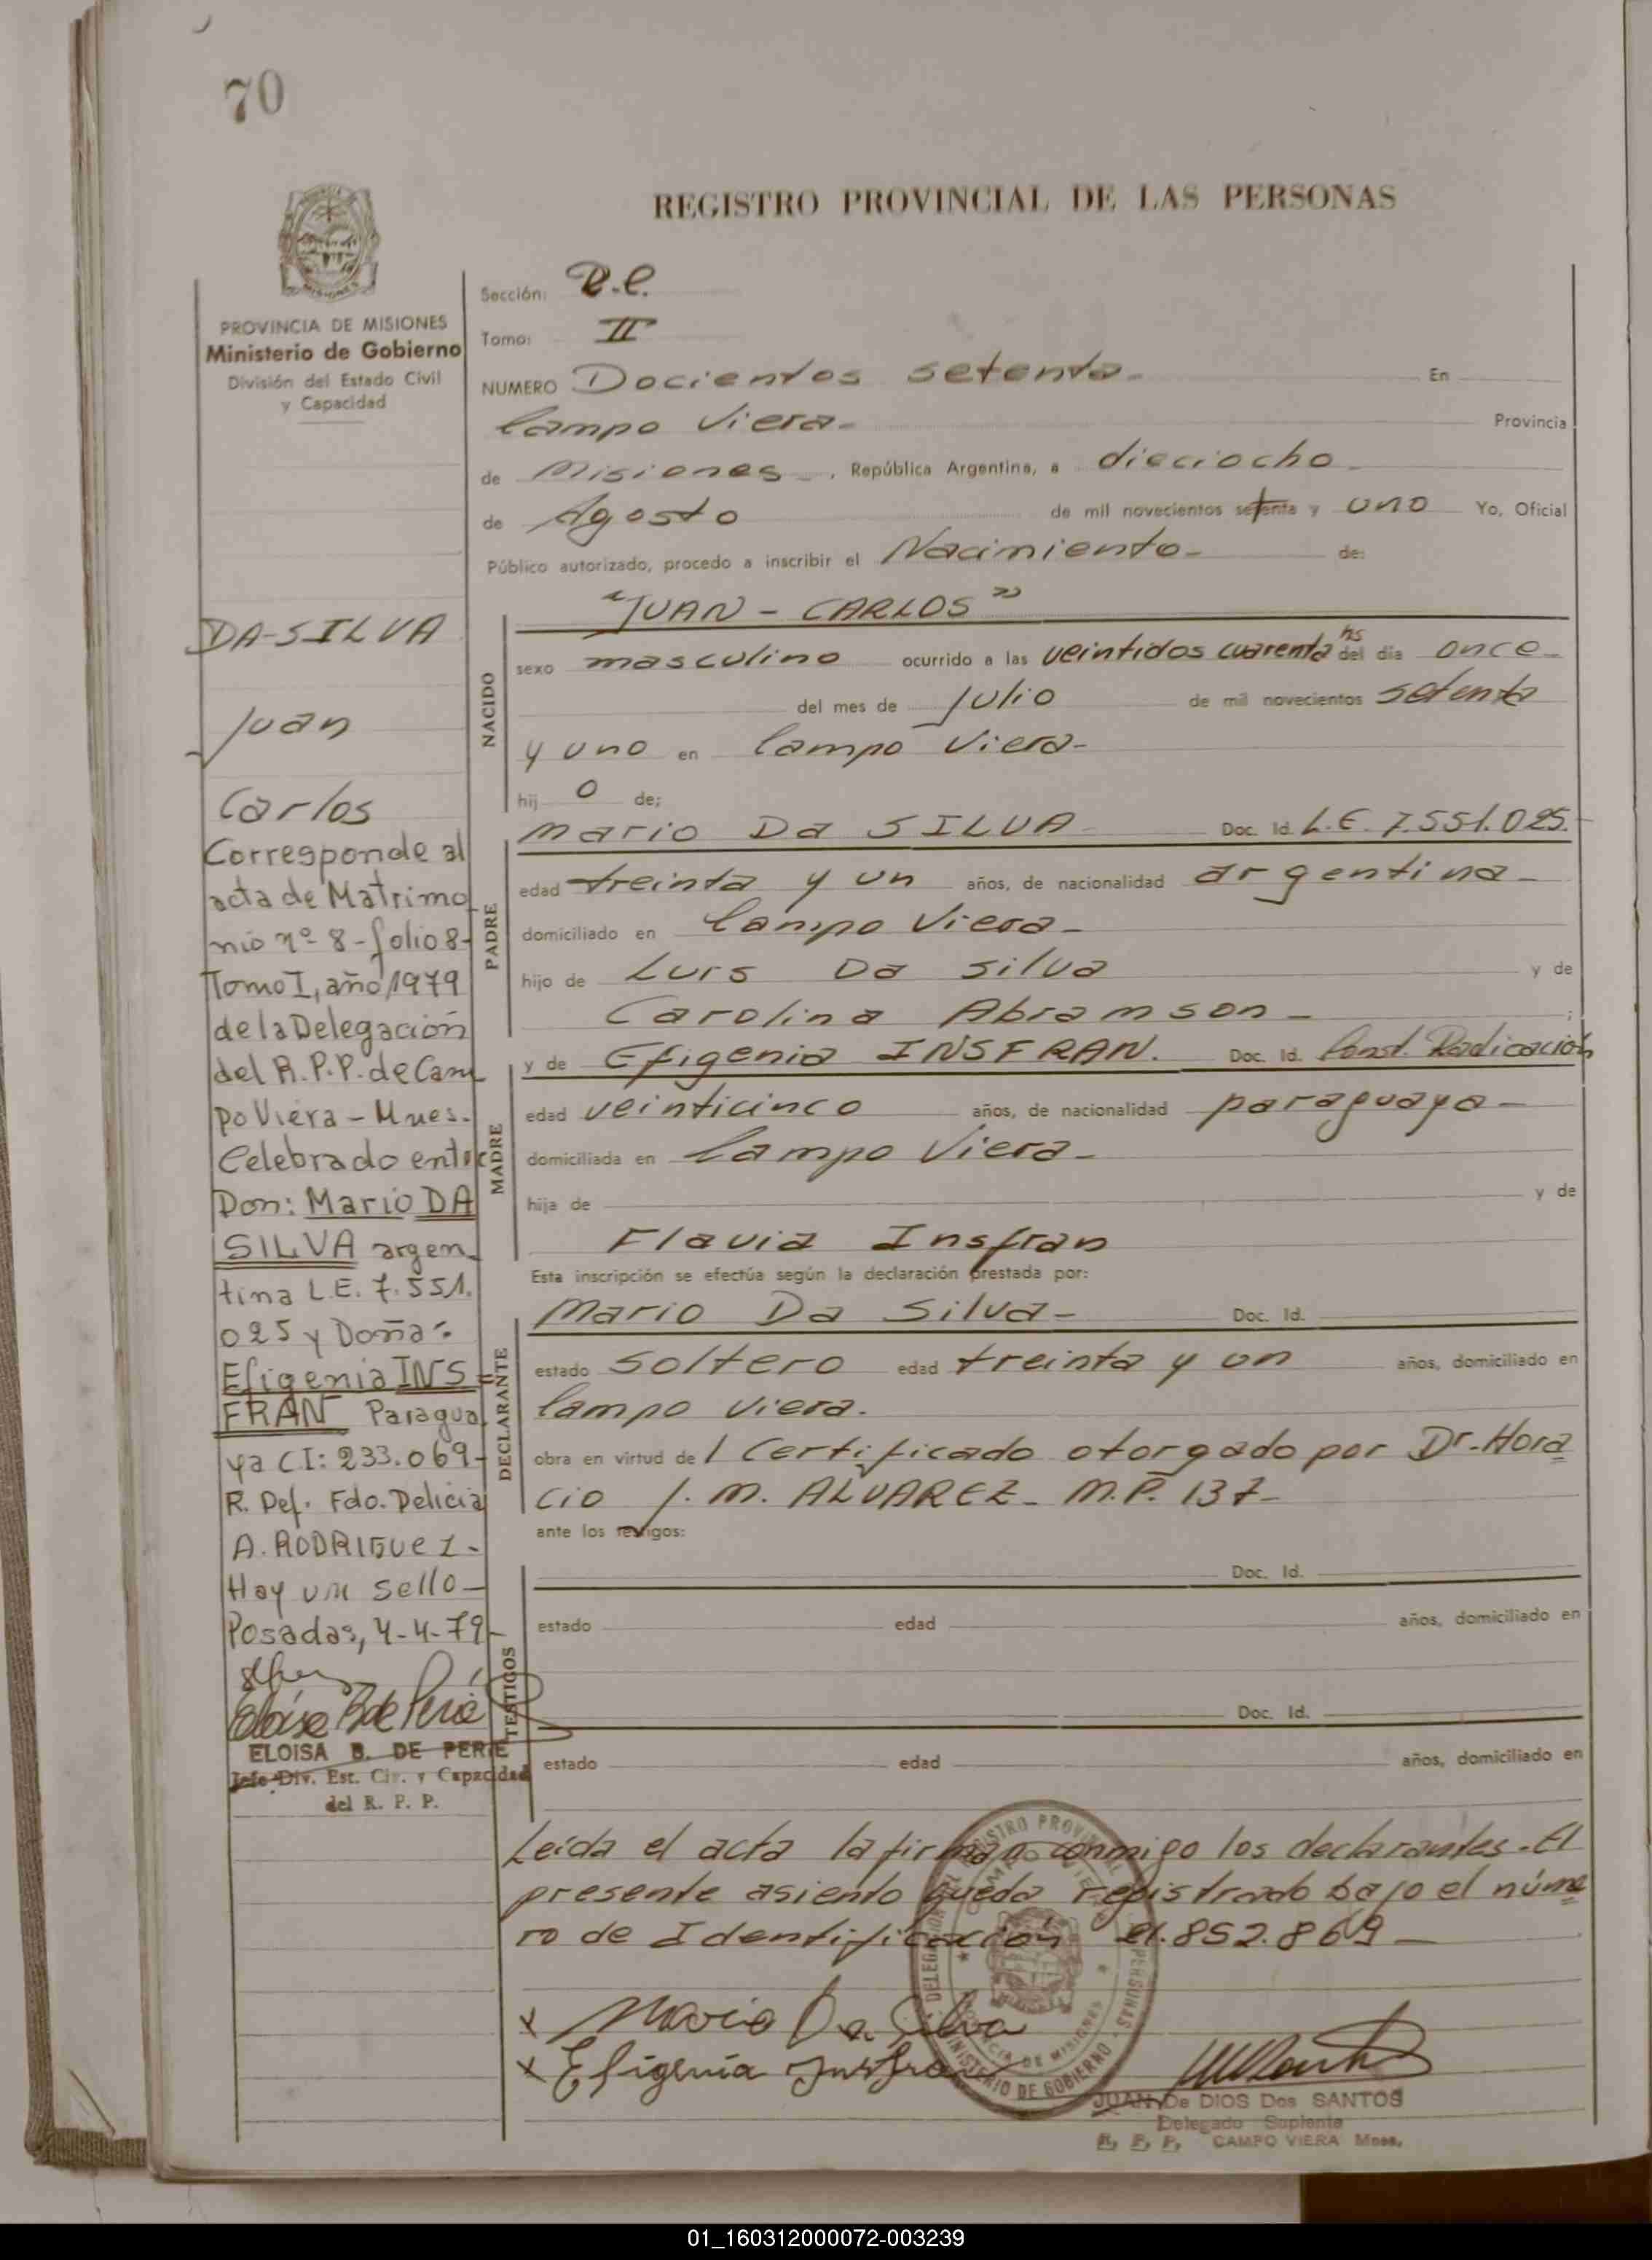 70
REGISTRO PROVINCIAL DE LAS PERSONAS
PROVINCIA DE MISIONES
Ministerio de Gobierno
División del Estado Civil
y Capacidad
DA-SILVA
Juan
Carlos
Corresponde al
acta de Matrimo
nio nº 8 - folio 8-
Tomo I, año 1979
de la Delegación
del R.P.P. de Cam
po Viera - Mnes.
Celebrado entre
Don: Mario DA
SILVA argen
tina L.E. 7.551.
025 y Doña:
Efigenia INS=
FRAN Paragua
ya C.I: 233.069-
R. Def. Fdo. Delicia
A. RODRIGUEZ-
Hay un sello-
Posadas, 4-4-79-
Eloisa B de Perié
ELOISA B. DE PERIE
Jefe Div. Est. Civ. y Capacidad
del R. P. P.
Sección:
Tomo: II
NUMERO Docientos setenta- En
Campo Viera- Provincia
de Misiones-, República Argentina, a dieciocho-
de Agosto de mil novecientos setenta y uno Yo, Oficial
Público autorizado, procedo a inscribir el Nacimiento- de:
"JUAN - CARLOS"
NACIDO
sexo masculino ocurrido a las veintidos cuarenta hs del día once-
del mes de Julio de mil novecientos setenta
y uno en Campo Viera-
hij o de;
PADRE
Mario Da SILVA- Doc. Id. L.E. 7.551.025.-
edad treinta y un años, de nacionalidad argentina-
domiciliado en Campo Viera-
hijo de Luis Da Silva y de
Carolina Abramson- ;
MADRE
y de Efigenia INSFRAN. Doc. Id. Const. Radicación
edad veinticinco años, de nacionalidad paraguaya-
domiciliada en Campo Viera-
hija de y de
Flavia Insfran
Esta inscripción se efectúa según la declaración prestada por:
DECLARANTE
Mario Da Silva- Doc. Id.
estado soltero edad treinta y un años, domiciliado en
Campo Viera.
obra en virtud de 1 Certificado otorgado por Dr. Hora
cio J. M. ALVAREZ- M.P. 137-
ante los testigos:
TESTIGOS
Doc. Id.
estado edad años, domiciliado en
Doc. Id.
estado edad años, domiciliado en
Leída el acta la firman conmigo los declarantes. El
presente asiento queda registrado bajo el núme
ro de Identificación 21.852.869-
x Mario Da Silva
x Efigenia Insfran
DELEGACION DEL REGISTRO PROVINCIAL DE LAS PERSONAS
CAMPO VIERA
PROVINCIA DE MISIONES
MINISTERIO DE GOBIERNO
JUAN De DIOS Dos SANTOS
Delegado Suplente
R. P. P. CAMPO VIERA Mnes.
01_160312000072-003239